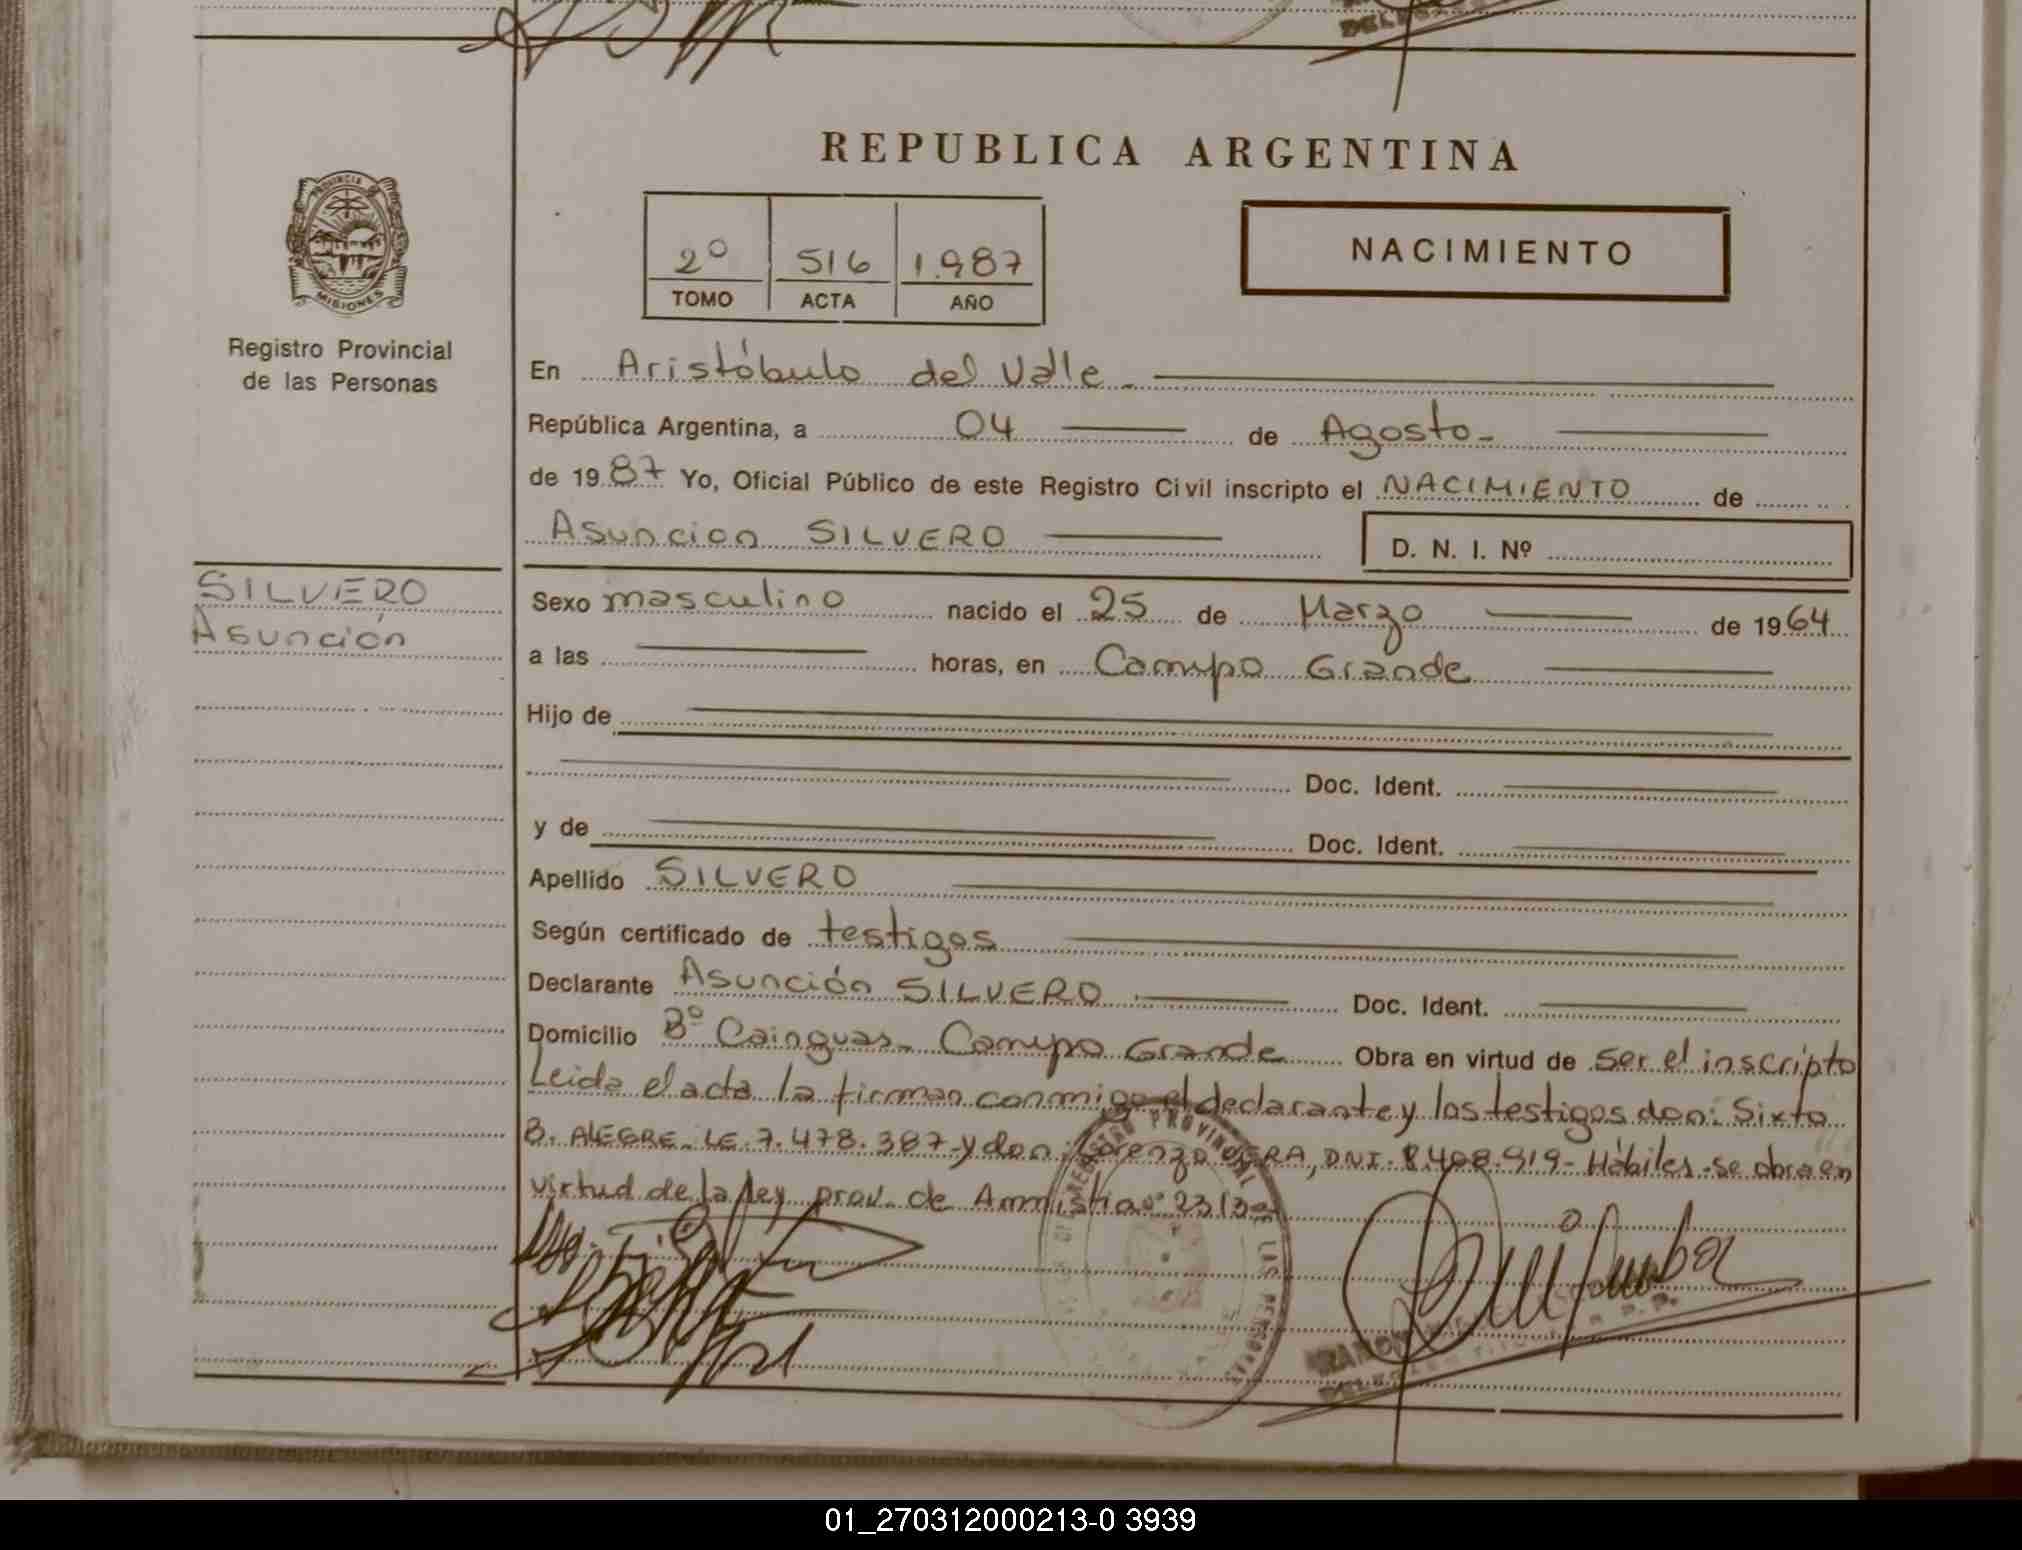 REPUBLICA ARGENTINA
PROVINCIA DE
MISIONES
Registro Provincial
de las Personas
2º 516 1.987
TOMO ACTA AÑO
NACIMIENTO
En Aristóbulo del Valle.
República Argentina, a 04 de Agosto.
de 1987 Yo, Oficial Público de este Registro Civil inscripto el NACIMIENTO de
Asuncion SILVERO D. N. I. Nº
SILVERO
Asunción
Sexo masculino nacido el 25 de Marzo de 1964
a las horas, en Campo Grande
Hijo de
Doc. Ident.
y de Doc. Ident.
Apellido SILVERO
Según certificado de testigos
Declarante Asunción SILVERO Doc. Ident.
Domicilio Bº Cainguas. Campo Grande Obra en virtud de ser el inscripto
Leida el acta la firman conmigo el declarante y los testigos don: Sixto
B. ALEGRE. LE. 7.478.387 y don: Lorenzo VERA, DNI. 8.408.919- Hábiles. se obra en
virtud de la ley prov. de Ammistia nº 2313
REGISTRO PROVINCIAL DE LAS PERSONAS
RAMON
DELEGADO TITULAR
01_270312000213-0 3939